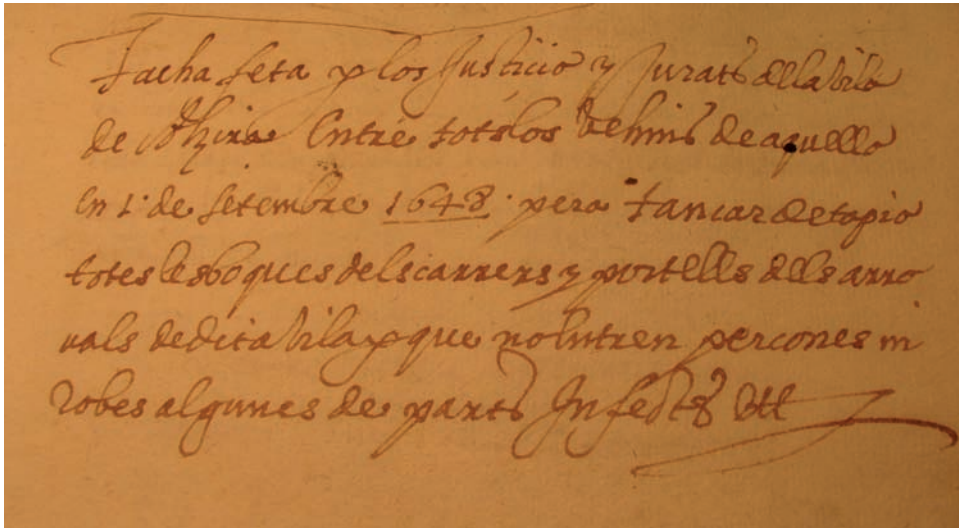 Tacha feta p los Justicia y Jurats dela vila
de Alzira Entre tots los vehins de aquella
en 1· de setembre 1648· pera tancar de tapia
totes les boques dels carrers y portells dells arra
vals de dita vila p que no entren perçones ni
robes algunes de parts Infectes Ett